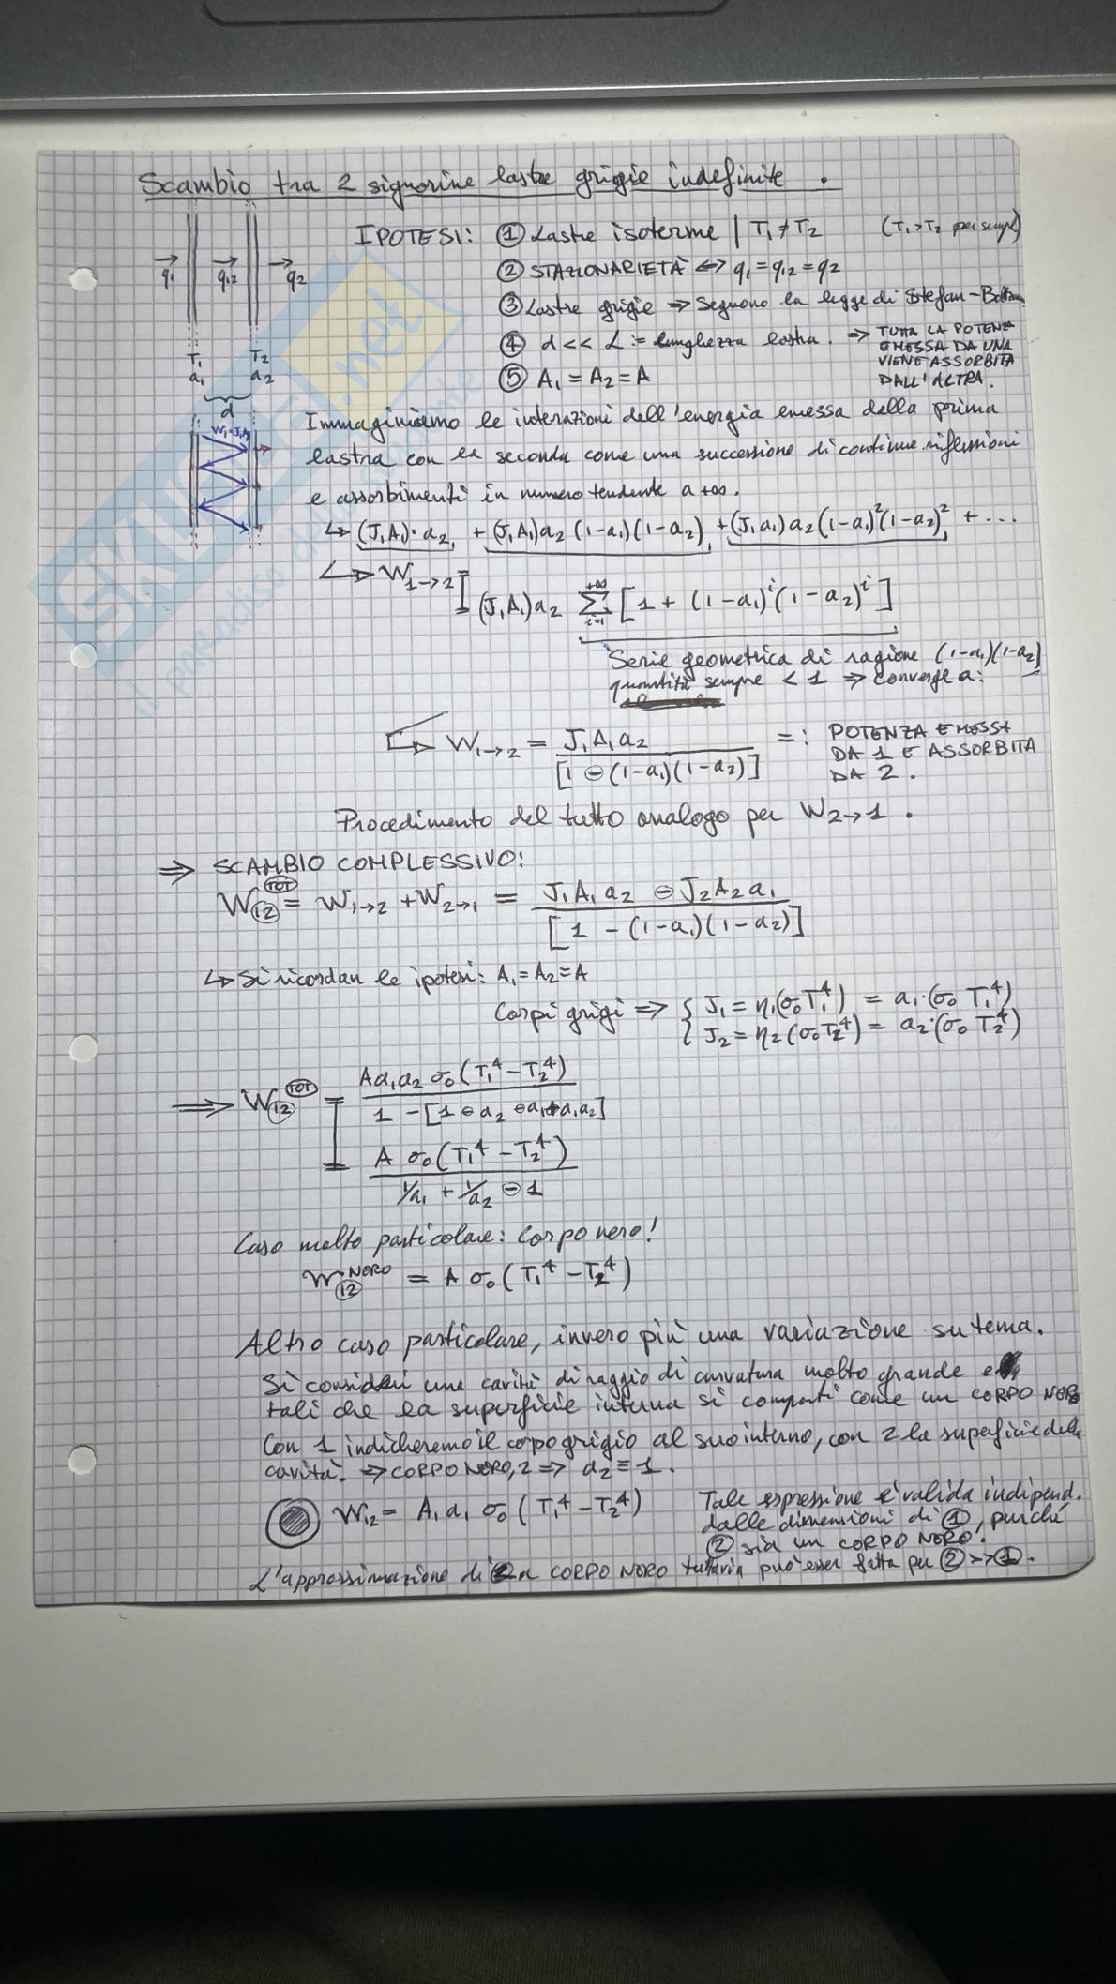 Scambio tra 2 signorine lastre grigie indefinite.
IPOTESI: ① Lastre isoterme | T₁ ≠ T₂ (T₁ > T₂ per sempl.)
q₁ q₁₂ q₂
② STAZIONARIETÀ ⇔ q₁ = q₁₂ = q₂
③ Lastre grigie ⇒ Seguono la legge di Stefan-Boltzm
④ d << L := lunghezza lastra. → TUTTA LA POTENZA
EMESSA DA UNA
VIENE ASSORBITA
DALL'ALTRA.
T₁ T₂
a₁ a₂
d
⑤ A₁ = A₂ = A
W₁=J₁A₁
Immaginiamo le interazioni dell'energia emessa dalla prima
lastra con la seconda come una successione di continue riflessioni
e assorbimenti in numero tendente a +∞.
↳ (J₁A₁)·a₂ + (J₁A₁)a₂ (1-a₁)(1-a₂) + (J₁a₁)a₂(1-a₁)²(1-a₂)² + ...
↳ W₁→₂ = (J₁A₁)a₂ Σ_{i=1}^{+∞} [1 + (1-a₁)ⁱ(1-a₂)ⁱ]
Serie geometrica di ragione (1-a₁)(1-a₂)
quantità sempre < 1 ⇒ converge a:
↳ W₁→₂ = J₁A₁a₂ / [1 ⊖ (1-a₁)(1-a₂)] =: POTENZA EMESSA
DA 1 E ASSORBITA
DA 2.
Procedimento del tutto analogo per W₂→₁.
⇒ SCAMBIO COMPLESSIVO:
W₁₂^TOT = W₁→₂ + W₂→₁ = J₁A₁a₂ ⊖ J₂A₂a₁ / [1 - (1-a₁)(1-a₂)]
↳ Si ricordan le ipotesi: A₁ = A₂ = A
Corpi grigi ⇒ { J₁ = η₁(σ₀T₁⁴) = a₁·(σ₀ T₁⁴)
{ J₂ = η₂(σ₀T₂⁴) = a₂·(σ₀ T₂⁴)
⇒ W₁₂^TOT = Aa₁a₂ σ₀(T₁⁴ - T₂⁴) / 1 - [1 ⊖ a₂ ⊖ a₁ + a₁a₂]
= A σ₀(T₁⁴ - T₂⁴) / 1/a₁ + 1/a₂ ⊖ 1
Caso molto particolare: Corpo nero!
W₁₂^NERO = A σ₀ (T₁⁴ - T₂⁴)
Altro caso particolare, invero più una variazione su tema.
Si consideri una cavità di raggio di curvatura molto grande e
tali che la superficie interna si comporti come un CORPO NERO
Con 1 indicheremo il corpo grigio al suo interno, con 2 la superficie della
cavità. ⇒ CORPO NERO, 2 ⇒ a₂ ≡ 1.
W₁₂ = A₁ a₁ σ₀ (T₁⁴ - T₂⁴) Tale espressione è valida indipend.
dalle dimensioni di ①, purché
② sia un CORPO NERO!
L'approssimazione di ② a CORPO NERO tuttavia può esser fatta per ② >> ①.
SKUOLA.net